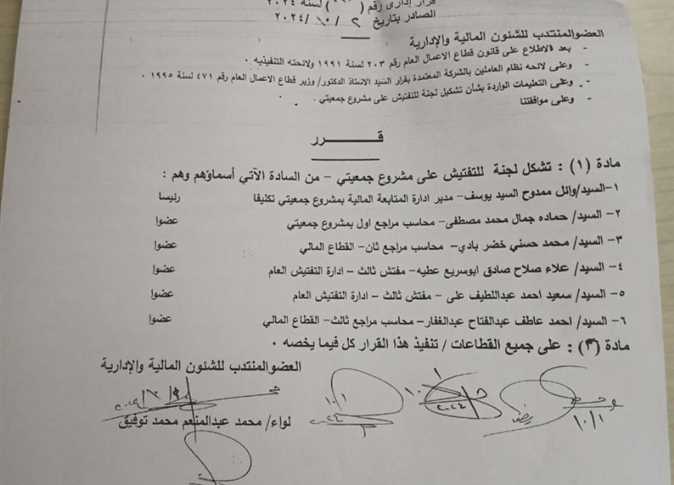 قرار إدارى رقم ( ) لسنة ٢٠٢٤
الصادر بتاريخ ٢ / ١٠ / ٢٠٢٤
العضو المنتدب للشئون المالية والإدارية
- بعد الاطلاع على قانون قطاع الاعمال العام رقم ٢٠٣ لسنة ١٩٩١ ولائحته التنفيذيه .
- وعلى لائحه نظام العاملين بالشركة المعتمدة بقرار السيد الاستاذ الدكتور/ وزير قطاع الاعمال العام رقم ٤٧١ لسنة ١٩٩٥ .
- وعلى التعليمات الواردة بشأن تشكيل لجنة للتفتيش على مشروع جمعيتي .
- وعلى موافقتنا
قــــــرر
مادة (١) : تشكل لجنة للتفتيش على مشروع جمعيتي – من السادة الآتي أسماؤهم وهم :
١- السيد/وائل ممدوح السيد يوسف– مدير ادارة المتابعة المالية بمشروع جمعيتي تكليفا رئيسا
٢- السيد/ حماده جمال محمد مصطفى– محاسب مراجع اول بمشروع جمعيتي عضوا
٣- السيد/ محمد حسني خضر بادي– محاسب مراجع ثان– القطاع المالي عضوا
٤- السيد/ علاء صلاح صادق ابوسريع عطيه– مفتش ثالث – ادارة التفتيش العام عضوا
٥- السيد/ سعيد احمد عبداللطيف على – مفتش ثالث – ادارة التفتيش العام عضوا
٦- السيد/ احمد عاطف عبدالفتاح عبدالغفار– محاسب مراجع ثالث– القطاع المالي عضوا
مادة (٣) : على جميع القطاعات / تنفيذ هذا القرار كل فيما يخصه .
العضو المنتدب للشئون المالية والإدارية
لواء/ محمد عبدالمنعم محمد توفيق
١٠/١